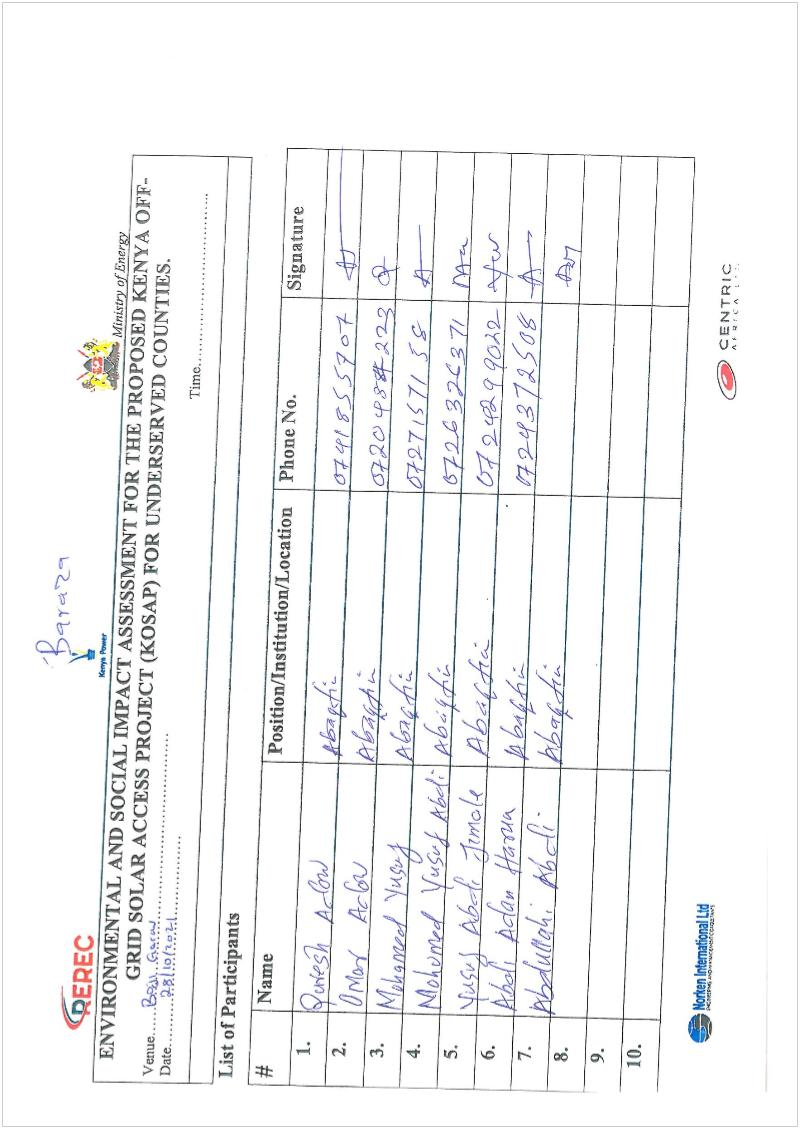 Baraza
REREC
Kenya Power
Ministry of Energy
ENVIRONMENTAL AND SOCIAL IMPACT ASSESSMENT FOR THE PROPOSED KENYA OFF-
GRID SOLAR ACCESS PROJECT (KOSAP) FOR UNDERSERVED COUNTIES.
Venue....
Date.... 28/10/2021 Time....
List of Participants
# Name Position/Institution/Location Phone No. Signature
1. Quresh Adow Abaqtiu 0741855707
2. Omar Adow Abaqtiu
3. Mohamed Yusuf Abaqtiu 0727157158
4. Mohamed Yusuf Abdi Abaqtiu 0726326371
5. Yusuf Abdi Jimale Abaqtiu 0724299022
6. Abdi Adan Harun Abaqtiu 0724372508
7. Abdullahi Abdi Abaqtiu
8.
9.
10.
Norken International Ltd
ENGINEERING AND MANAGEMENT CONSULTANTS
CENTRIC
AFRICA LTD.